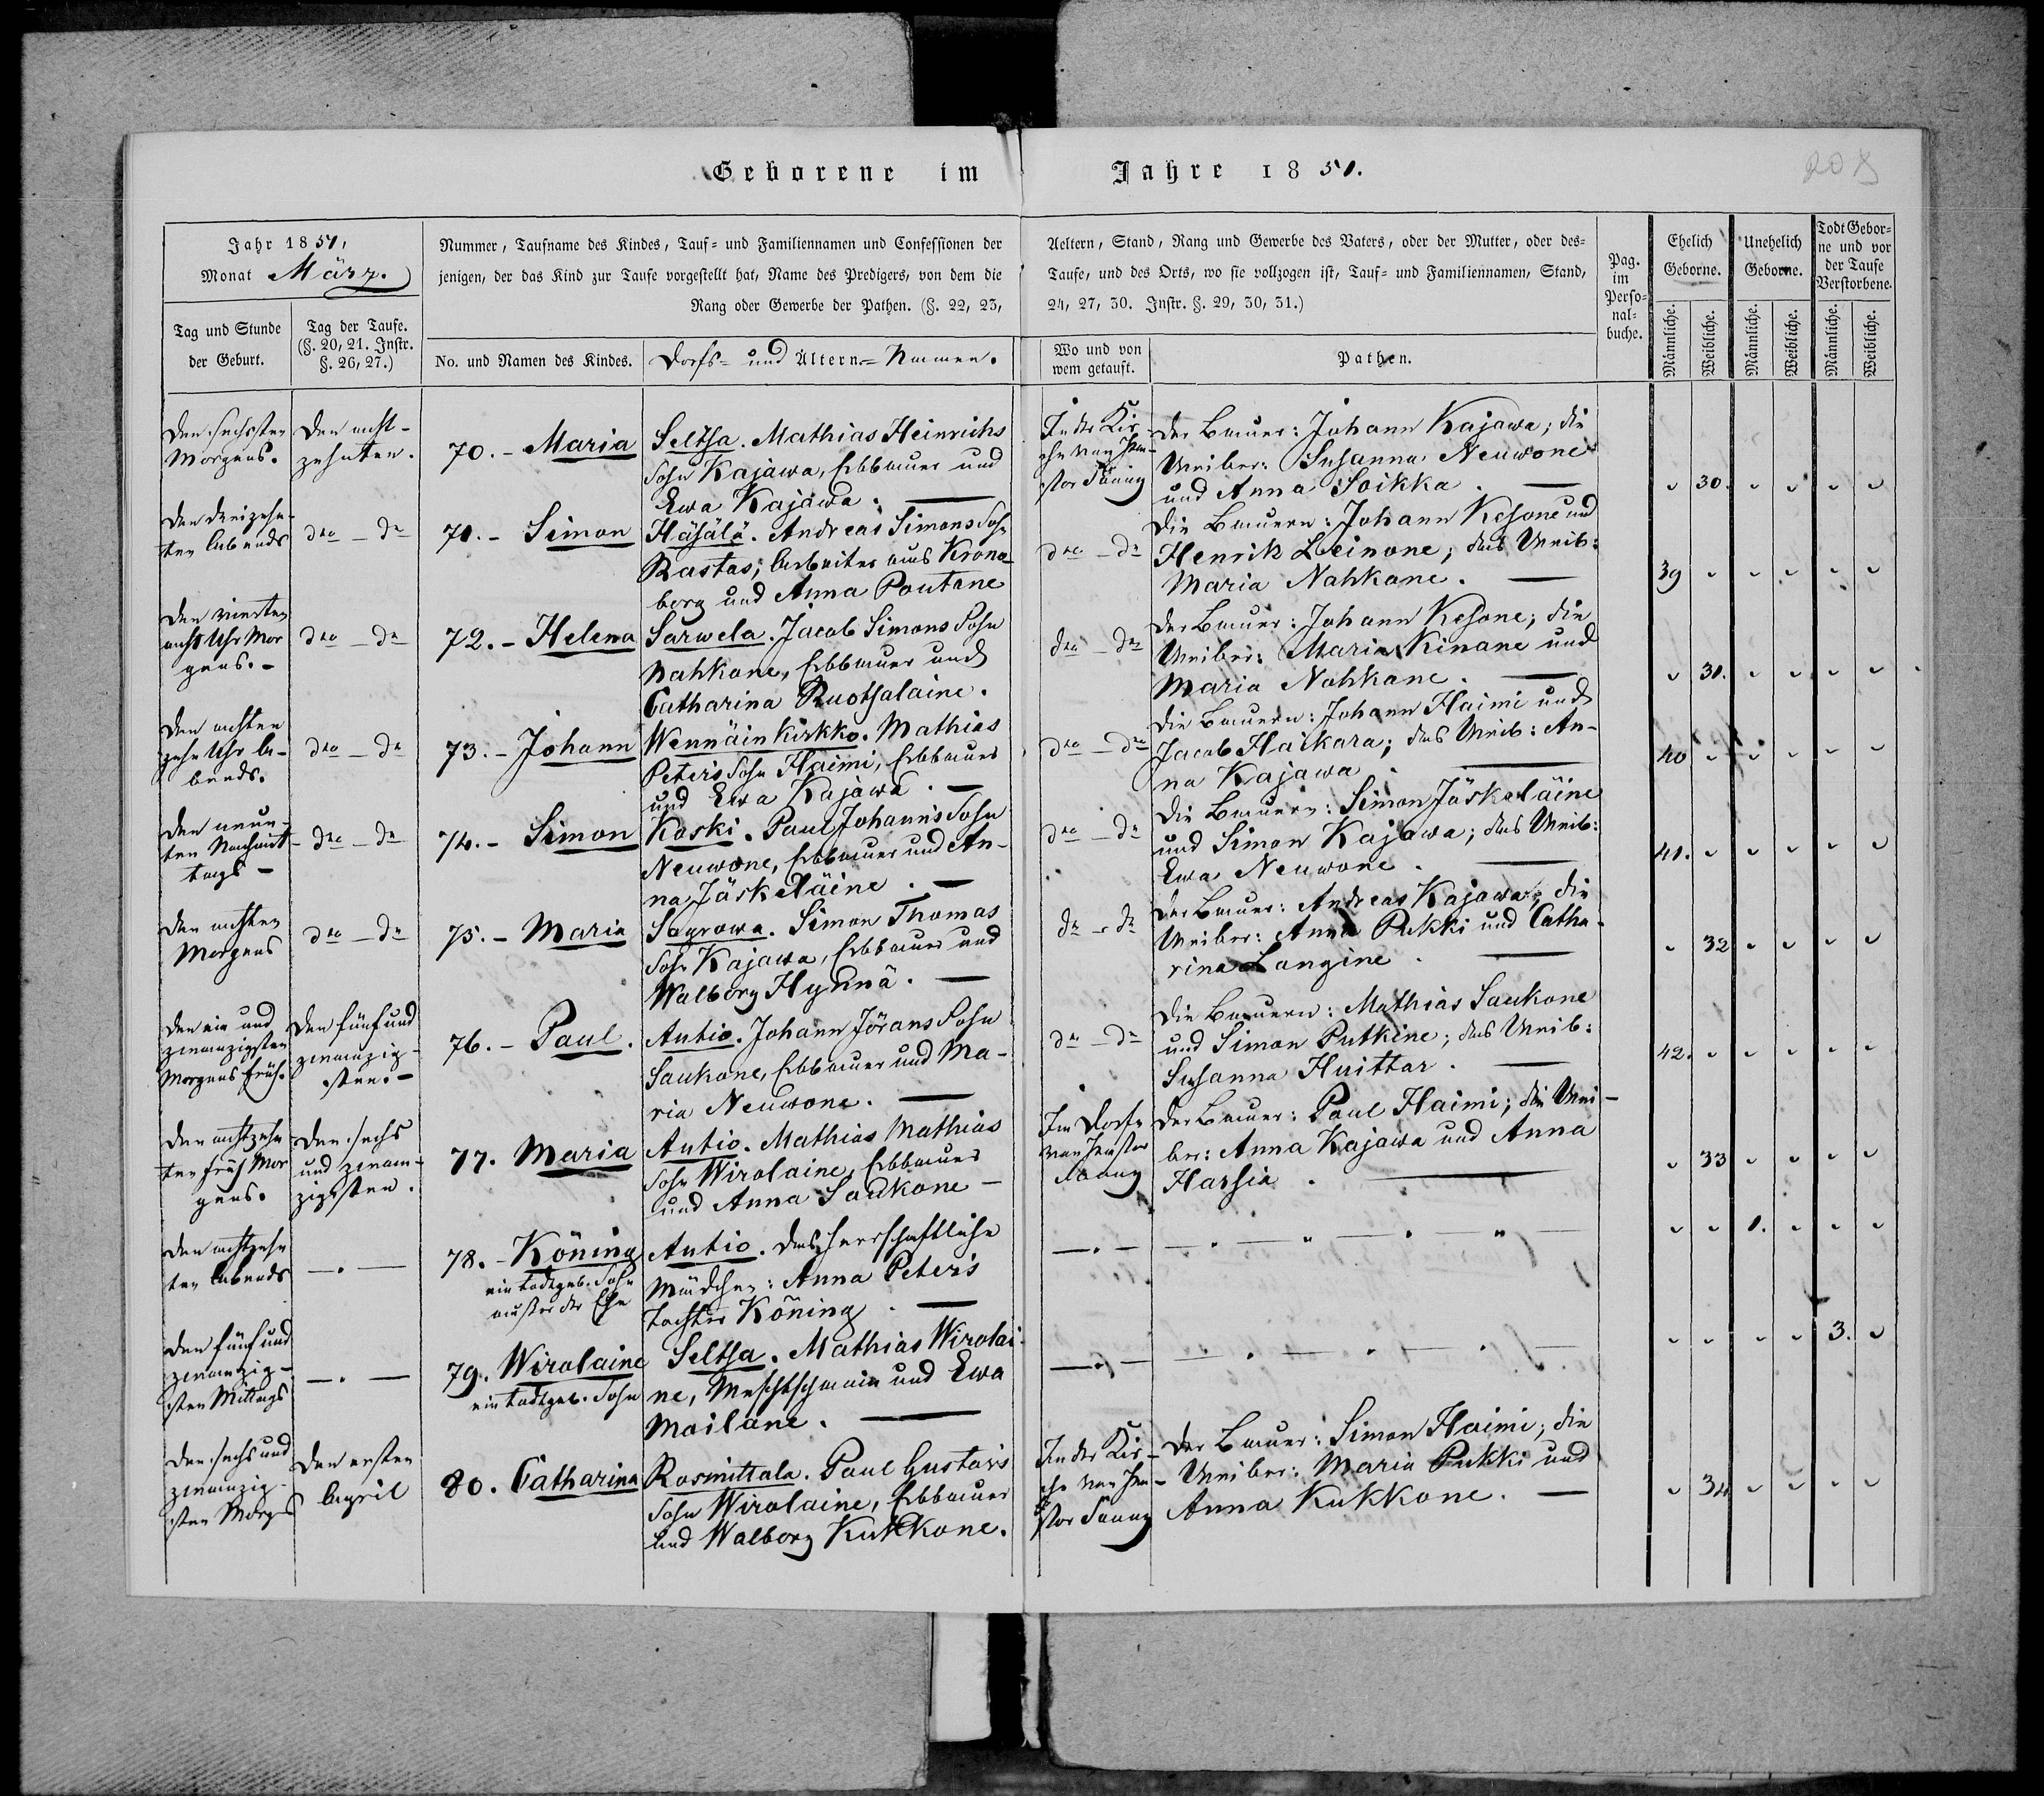 Geborene im Jahre 1851.
208
Jahr 1851,
Monat März.
Tag und Stunde
der Geburt.
Tag der Taufe.
(§. 20, 21. Instr.
§. 26, 27.)
Nummer, Taufname des Kindes, Tauf- und Familiennamen und Confessionen der
jenigen, der das Kind zur Taufe vorgestellt hat, Name des Predigers, von dem die
Rang oder Gewerbe der Pathen. (§. 22, 23,
No. und Namen des Kindes.
Dorfs- und Ältern-Namen.
Aeltern, Stand, Rang und Gewerbe des Vaters, oder der Mutter, oder des-
Taufe, und des Orts, wo sie vollzogen ist, Tauf- und Familiennamen, Stand,
24, 27, 30. Instr. §. 29, 30, 31.)
Wo und von
wem getauft.
Pathen.
Pag.
im
Perso-
nal-
buche.
Ehelich
Geborne.
Unehelich
Geborne.
Todt Gebor-
ne und vor
der Taufe
Verstorbene.
Männliche.
Weibliche.
Männliche.
Weibliche.
Männliche.
Weibliche.
Den sechsten
Morgens.
Den acht-
zehnten.
70. - Maria
Seltsa. Mathias Heinrichs
Sohn Kajawa, Erbbauer und
Ewa Kajawa.
In der Kir-
che von Pa-
stor
Der Bauer: Johann Kajawa; die
Weiber: Susanna Neuwone
und Anna Soikka.
30.
Den dreizehn-
ten Abends
dto - do
71. - Simon
Häsälä. Andreas Simons Sohn
Rastas; Arbeiter aus Krona-
borg und Anna Pontane
dto - do
Die Bauern: Johann Kesone und
Henrik Leinone; das Weib:
Maria Nahkane.
39
Den vierten
acht Uhr Mor
gens. -
dto - do
72. - Helena
Sarwela. Jacob Simons Sohn
Nahkane, Erbbauer und
Catharina Ruotsalaine.
dto - do
Der Bauer: Johann Kesone; die
Weiber: Maria Kinane und
Maria Nahkane.
31.
Den achten
zehn Uhr A-
bends.
dto - do
73. - Johann
Wennäin Kirkko. Mathias
Peters Sohn Haimi, Erbbauer
und Ewa Kajawa.
dto - do
Die Bauern: Johann Haimi und
Jacob Haikara; das Weib: An-
na Kajawa
40
Den neun-
ten Nachmit-
tags -
dto - do
74. - Simon
Koski. Paul Johanns Sohn
Neuwone, Erbbauer und An-
na Jäskeläine.
dto - do
Die Bauern: Simon Jäskeläine
und Simon Kajawa; das Weib:
Ewa Neuwone.
41.
Den achten
Morgens
dto - do
75. - Maria
Sayrowa. Simon Thomas
Sohn Kajawa, Erbbauer und
Walborg Hynnä.
do - do
Der Bauer: Andreas Kajawa; die
Weiber: Anna Pukki und Catha-
rina Langine.
32
Den ein und
zwanzigsten
Morgens früh.
Den fünf und
zwanzig-
sten. -
76. - Paul.
Autio. Johann Jörans Sohn
Saukone, Erbbauer und Ma-
ria Neuwone.
do - do
Die Bauern: Mathias Saukone
und Simon Putkine; das Weib:
Susanna Huittar.
42.
Den achtzehn
ten früh Mor
gens.
Den sechs
und zwan-
zigsten.
77. Maria
Autio. Mathias Mathias
Sohn Wirolaine, Erbbauer
und Anna Saukone -
Im Dorfe
von Pastor
Der Bauer: Paul Haimi; die Wei-
ber: Anna Kajawa und Anna
Harsia.
33
Den achtzehn
ten Abends
78. - Köning
ein todtgeb. Sohn
außer der Ehe
Autio. Das herrschaftliche
Mädchen: Anna Peters
Tochter Köning.
1.
Den fünf und
zwanzig-
sten Mittags
79. Wirolaine
ein todtgeb. Sohn
Seltsa. Mathias Wirolai-
ne, und Ewa
Moilane.
3.
Den sechs und
zwanzig-
sten Morgs
Den ersten
April
80. Catharina
Rosmittala. Paul Gustavs
Sohn Wirolaine, Erbbauer
und Walborg Kukkone.
In der Kir-
che von Pa-
stor
Der Bauer: Simon Haimi; die
Weiber: Maria Pukki und
Anna Kukkone.
34